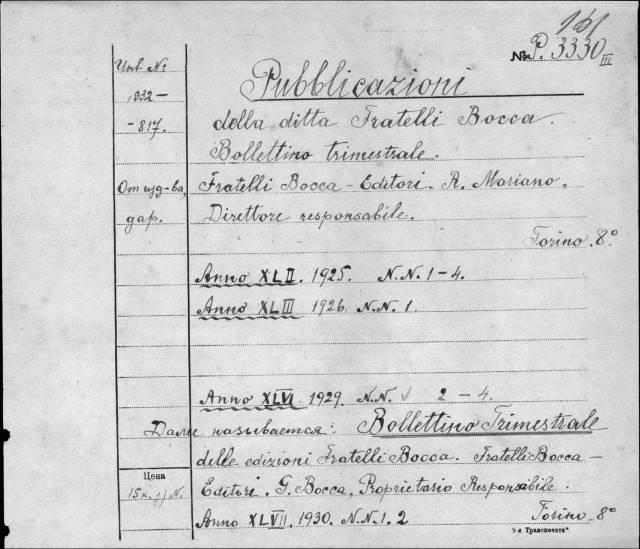 161
№ P. 3330 III
Инв №
1932-
-817.
Pubblicazioni
della ditta Fratelli Bocca.
Bollettino trimestrale.
От изд-ва,
дар.
Fratelli Bocca - Editori. R. Moriano,
Direttore responsabile.
Torino. 8°.
Anno XLII. 1925. N.N. 1-4.
Anno XLIII 1926. N.N. 1.
Anno XLVI 1929. N.N. 2-4.
Далее называется: Bollettino Trimestrale
delle edizioni Fratelli Bocca. Fratelli Bocca-
Editori. G. Bocca, Proprietario Responsabile.
Цена
15к. N.
Anno XLVII. 1930. N.N. 1. 2
Torino. 8°
"Транспечати".